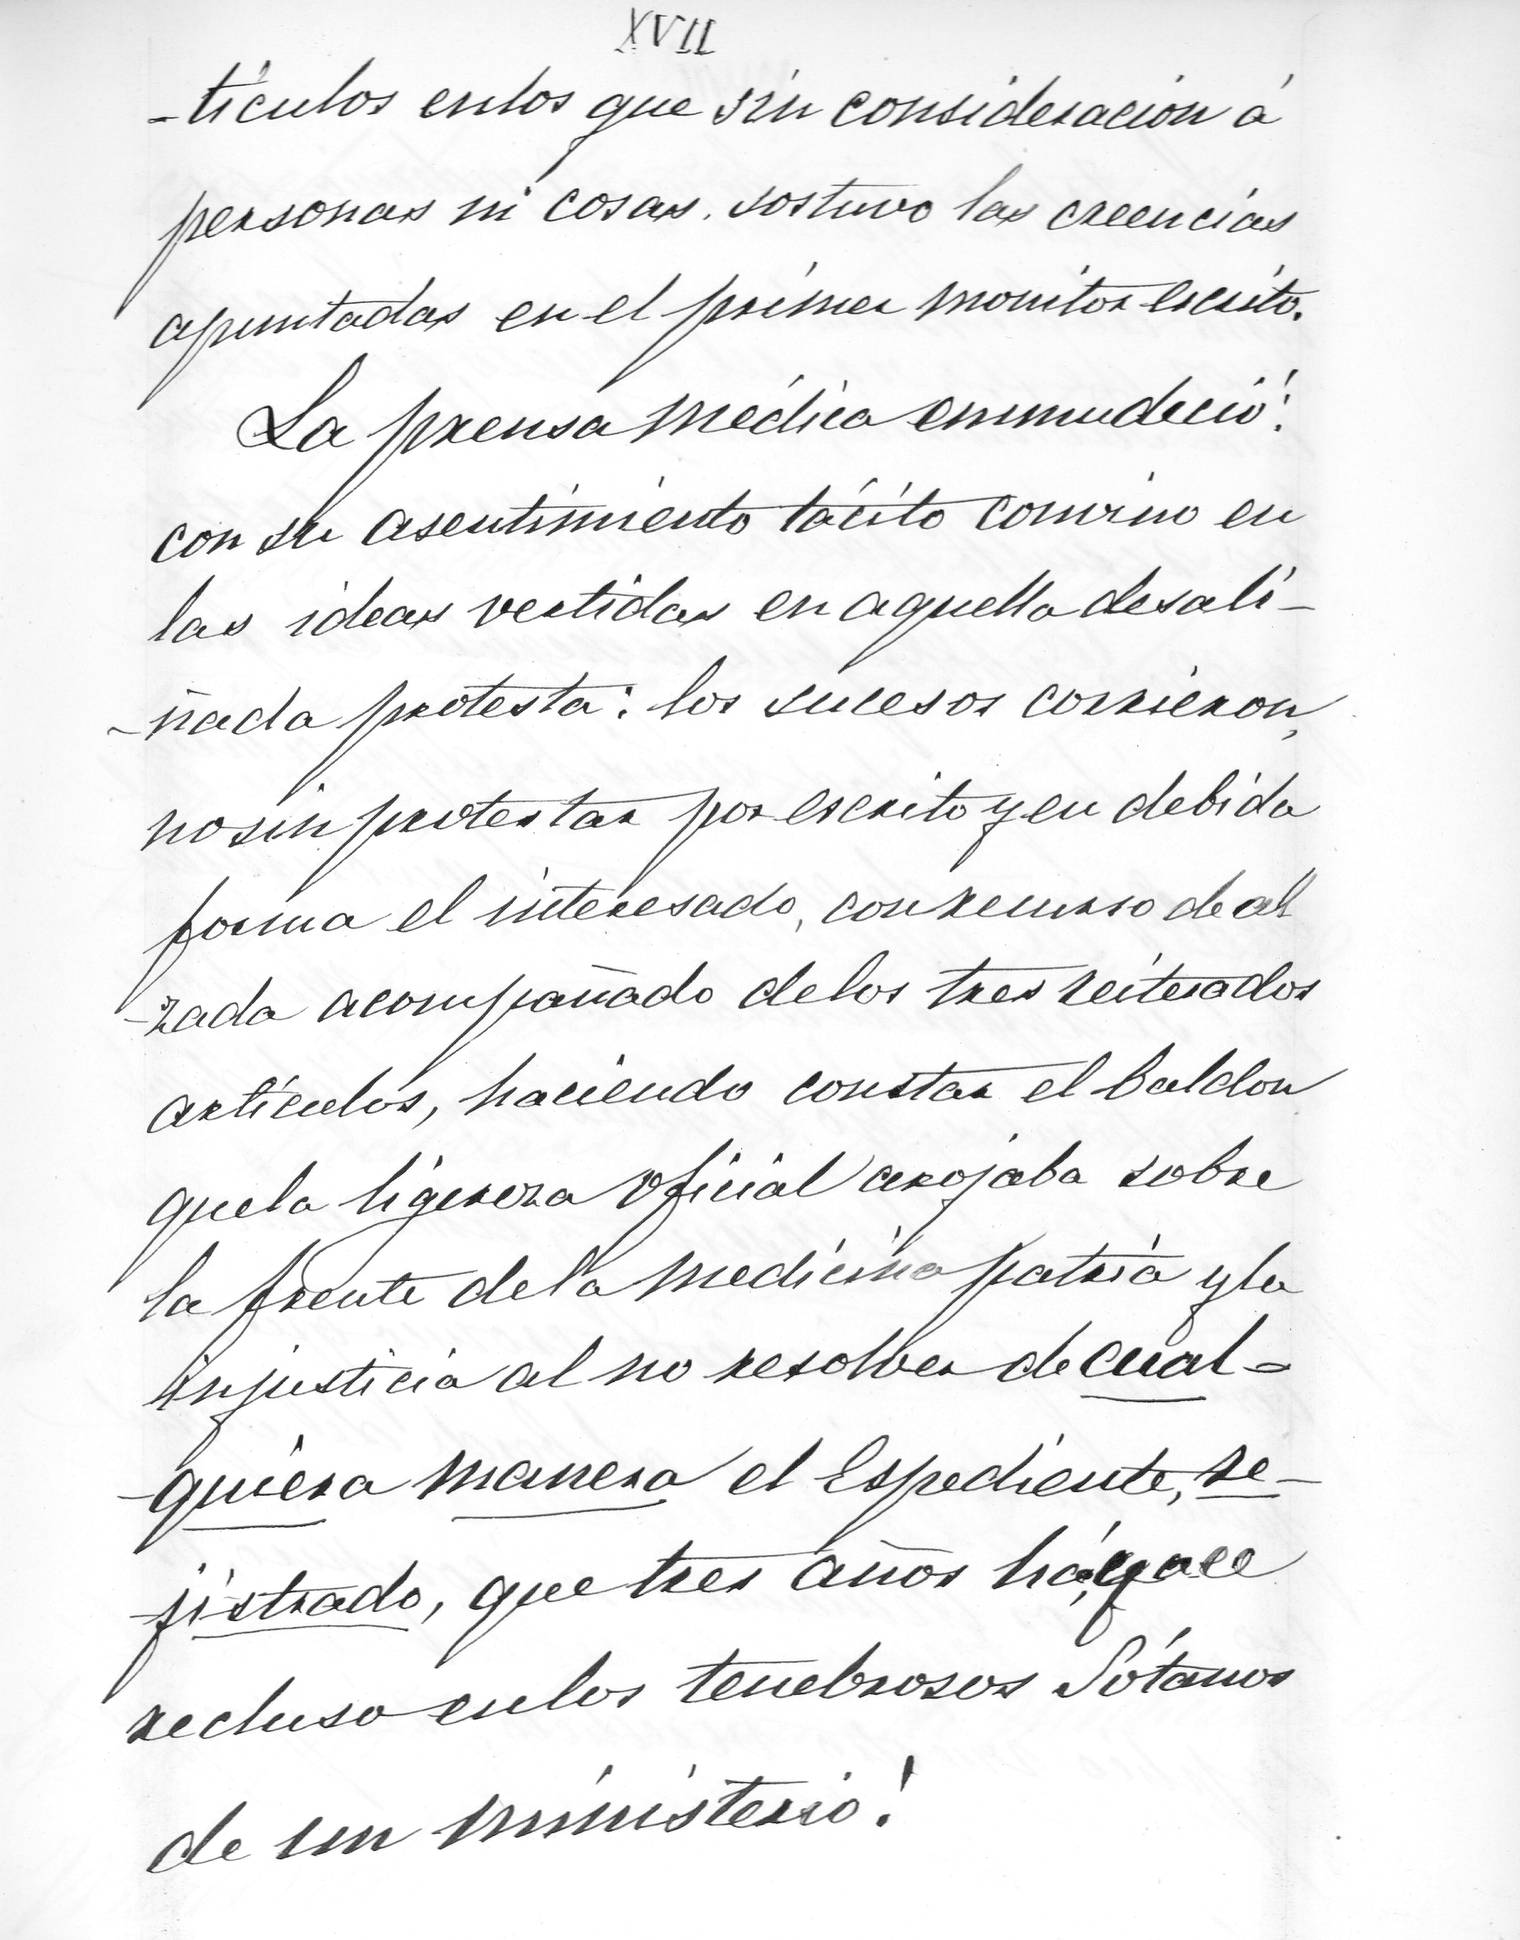 XVII
-tículos en los que sin consideracion á
personas ni cosas. sostuvo las creencias
apuntadas en el primer monitor escrito.
La prensa médica enmudeció!
con su asentimiento tácito convino en
las ideas vertidas en aquella desali-
-ñada protesta: los sucesos corrieron,
no sin protestar por escrito y en debida
forma el interesado, con recurso de al
-zada acompañado de los tres reiterados
artículos, haciendo constar el baldon
que la ligereza oficial arojaba sobre
la frente de la medicina patria y la
injusticia al no resolver de cual=
-quiera manera el Espediente, re-
-jistrado, que tres años há, yace
recluso en los tenebrosos Sótanos
de un ministerio!